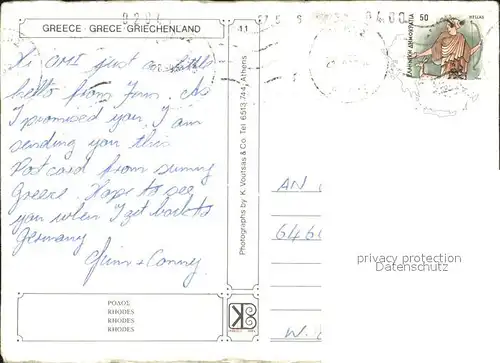 GREECE · GRECE · GRIECHENLAND
11
Hi OMI just a little
hello from Finn. As
I promised you, I am
sending you this
Postcard from sunny
Greece. Hope to see
you when I get back to
Germany
+ Conny
Photographs by K. Voutsas & Co. Tel 6513 744, Athens
ΡΟΔΟΣ
RHODES
RHODES
RHODES
50
ΕΛΛΗΝΙΚΗ ΔΗΜΟΚΡΑΤΙΑ
HELLAS
AN
646
W.
privacy protection
Datenschutz